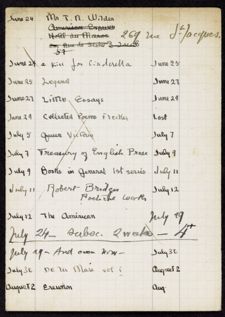 June 24 Mr T. N. Wilder
American Express
Hotel du Maroc
57
269 rue St Jacques.
June 24 a Kiss for Cinderella June 25
June 25 Legend June 27
June 27 Limbo, Essays June 29
June 29 Collected Poems Flecker Lost
July 5 Queen Victoria July 7
July 7 Treasury of English Prose July 9
July 9 Books in General 1st series July 11
July 11 Robert Bridges July 12
Poetical Works
July 12 The American July 29
July 24 - Subsc. 2 weeks - 4
July 29 - And even now - July 31
July 31 De la Mare vol 1 August 2
August 2 Erewhon Aug